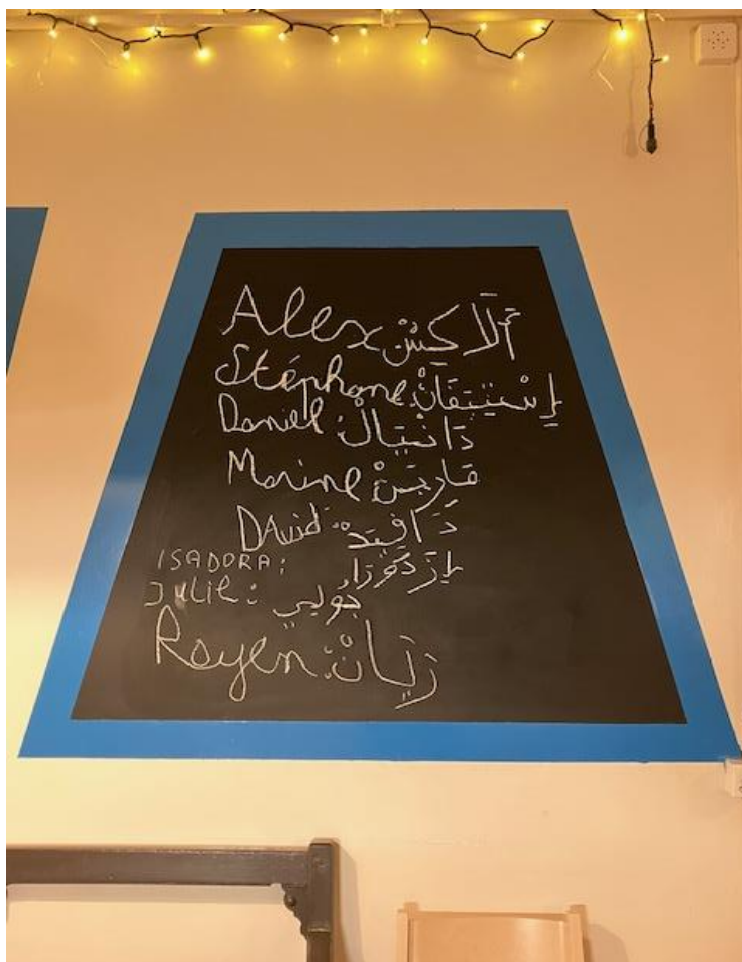 Alex أَلَاكِسْ
Stéphane: إِسْتِيفَانْ
Daniel: دَانْيَالْ
Marine مَارِينْ
DAvid: دَافِيدْ
ISADORA: إِزَدُورَا
Julie: جُولِي
Rayen: رَيَانْ